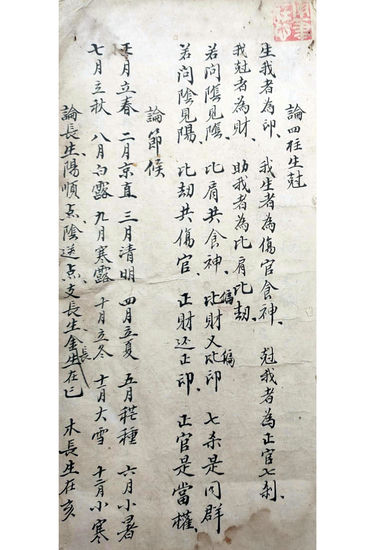 論四柱生尅
生我者為印、我生者為傷官食神、尅我者為正官七刹、
我尅者為財、助我者為比肩比刼、
若問陰見陰、比肩共食神、偏財又偏印 七煞是同群
若問陰見陽、比刼共傷官、正財还正印、正官是當權、
論節候
正月立春 二月京直 三月清明 四月立夏 五月種 六月小暑
七月立秋 八月白露 九月寒露 十月立冬 十一月大雪 十二月小寒
論長生、陽順去陰逆去支長生、金長生在巳 木長生在亥